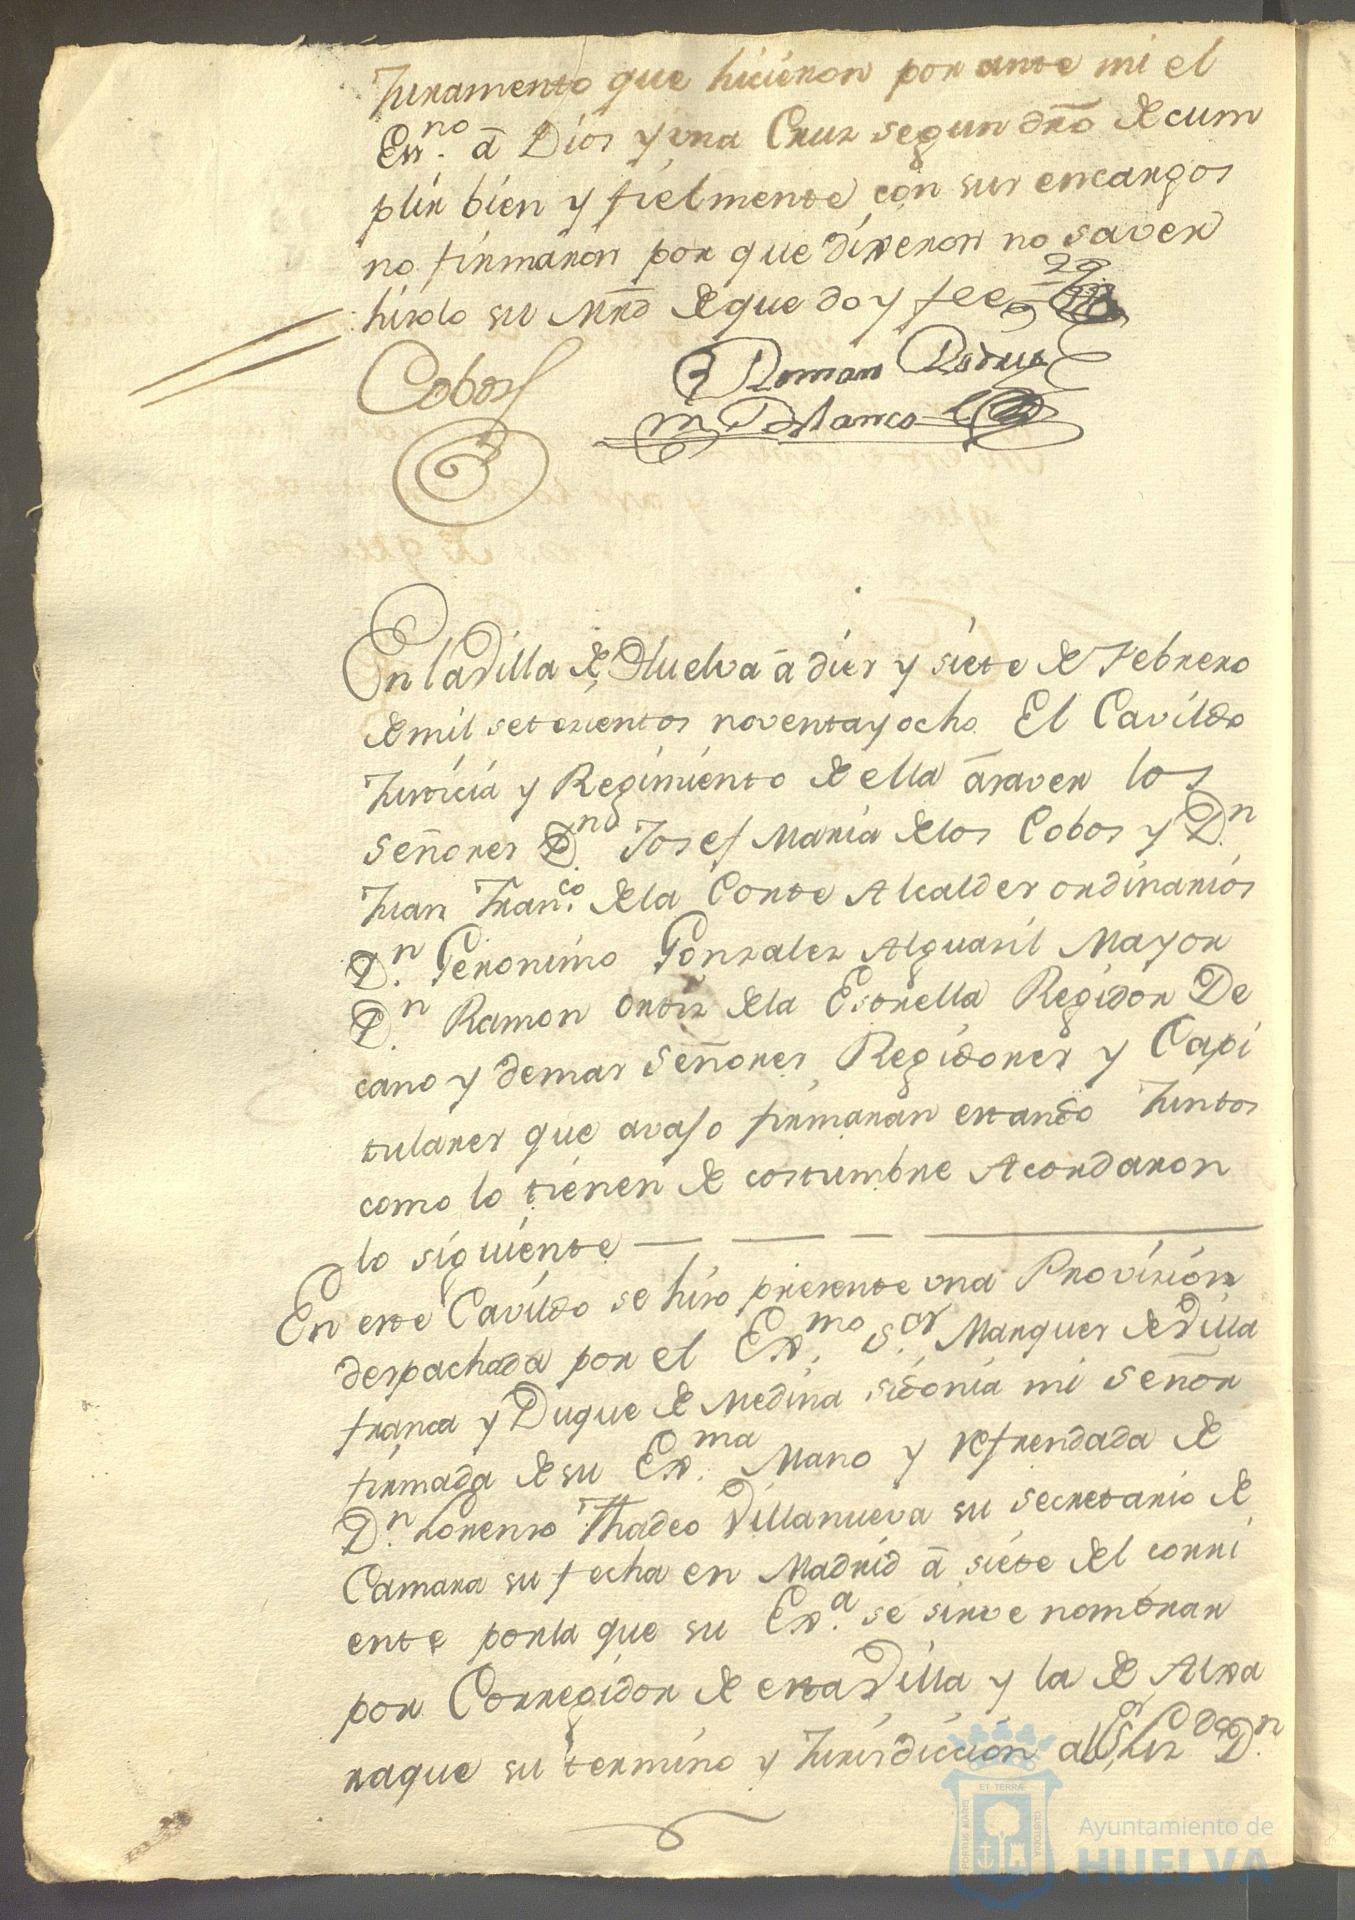 Juramento que hicieron por ante mi el
Essno. â Dios y vna Cruz segun dro de cum
plir bien y fielmente con sus encargos
no firmaron por que dixeron no saver
hizolo su Mrd de que doy fee
Cobos
Roman
Blanco
En la Villa de Huelva â diez y siete de Febrero
de mil setezientos noventa y ocho El Cavildo
Justicia y Regimiento de ella âsaver los
Señores Dn. Josef Maria de los Cobos y Dn.
Juan Franco. de la Corte Alcaldes ordinarios
Dn. Geronimo Gonzalez Alguasil Mayor
Dn. Ramon Ortiz de la Estrella Regidor De
cano y demas Señores Regidores y Capi
tulares que avajo firmaran estando Juntos
como lo tienen de costumbre Acordaron
lo siguiente
En este Cavildo se hizo presente vna Provision
despachada por el Exmo. Sor. Marques de Villa
franca y Duque de Medina Sidonia mi Señor
firmada de su Exma. Mano y refrendada de
Dn. Lorenzo Thadeo Villanueva su Secretario de
Camara su fecha en Madrid â siete del corri
ente por la que su Exa. se sirve nombrar
por Corregidor de esta Villa y la de Alxa
raque su termino y Jurisdiccion al Dn.
ET TERRÆ
PORTUS MARIS
CUSTODIA
Ayuntamiento de
HUELVA